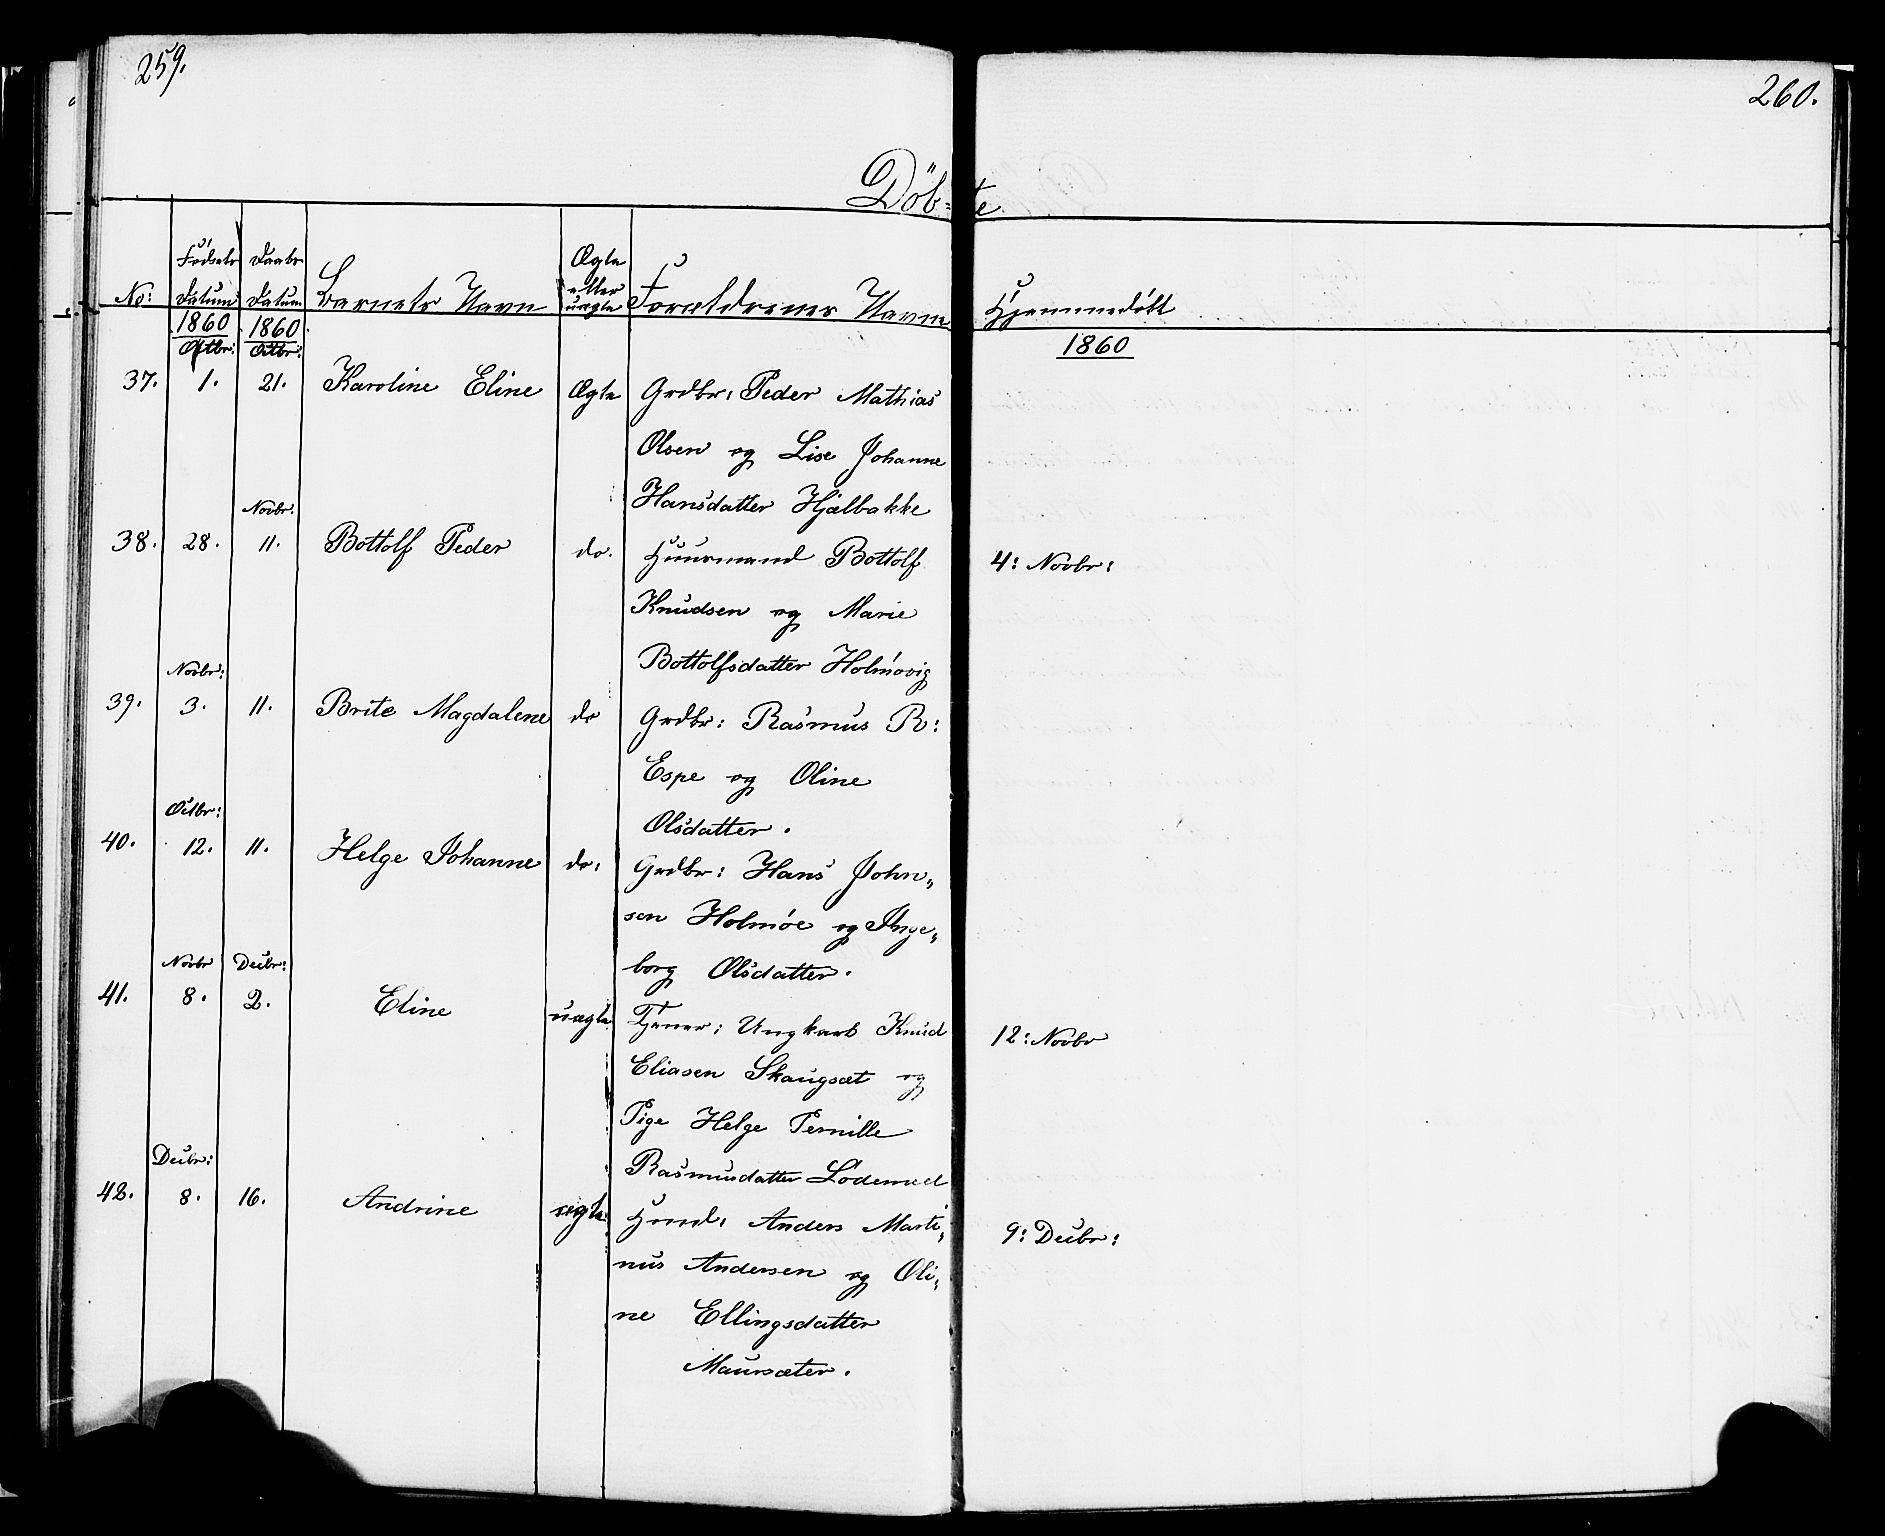 259.
260.
Döb=te
No: Fødsels Datum Daabs Datum Barnets Navn Ægte eller uægte Forældrenes Navne Hjemmedøbt
1860 1860 1860
Octbr: Octbr:
37. 1. 21. Karoline Eline Ægte Grdbr: Peder Mathias
Olsen og Lise Johanne
Hansdatter Hjelbakke
Novbr:
38. 28. 11. Bottolf Peder do. Huusmand Bottolf 4: Novbr:
Knudsen og Marie
Bottolfsdatter Holmøvig
Novbr:
39. 3. 11. Brite Magdalene do Grdbr: Rasmus R:
Espe og Oline
Olsdatter.
Octbr:
40. 12. 11. Helge Johanne do: Grdbr: Hans John„
sen Holmøe og Inge„
borg Olsdatter.
Novbr Decbr:
41. 8. 2. Eline uægte Tjener: Ungkarl Knud 12: Novbr
Eliasen Skaugsæt og
Pige Helge Pernille
Rasmusdatter Lødemeel
Decbr:
42. 8. 16. Andrine ægte Hmd: Anders Marti„ 9: Decbr:
nus Andersen og Oli„
ne Ellingsdatter
Maursæter.